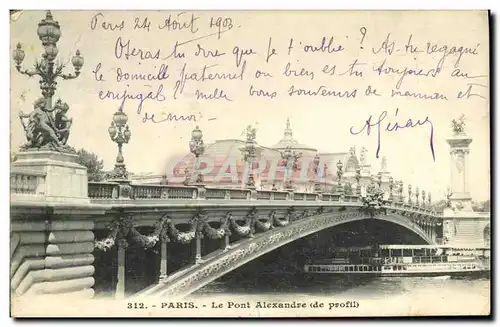 Paris 24 Août 1903
Oseras-tu dire que je t'oublie ? As-tu regagné
le domicile paternel ou bien es-tu toujours au
conjugal ? Mille bons souvenirs de maman et
de moi
312. - PARIS. - Le Pont Alexandre (de profil)